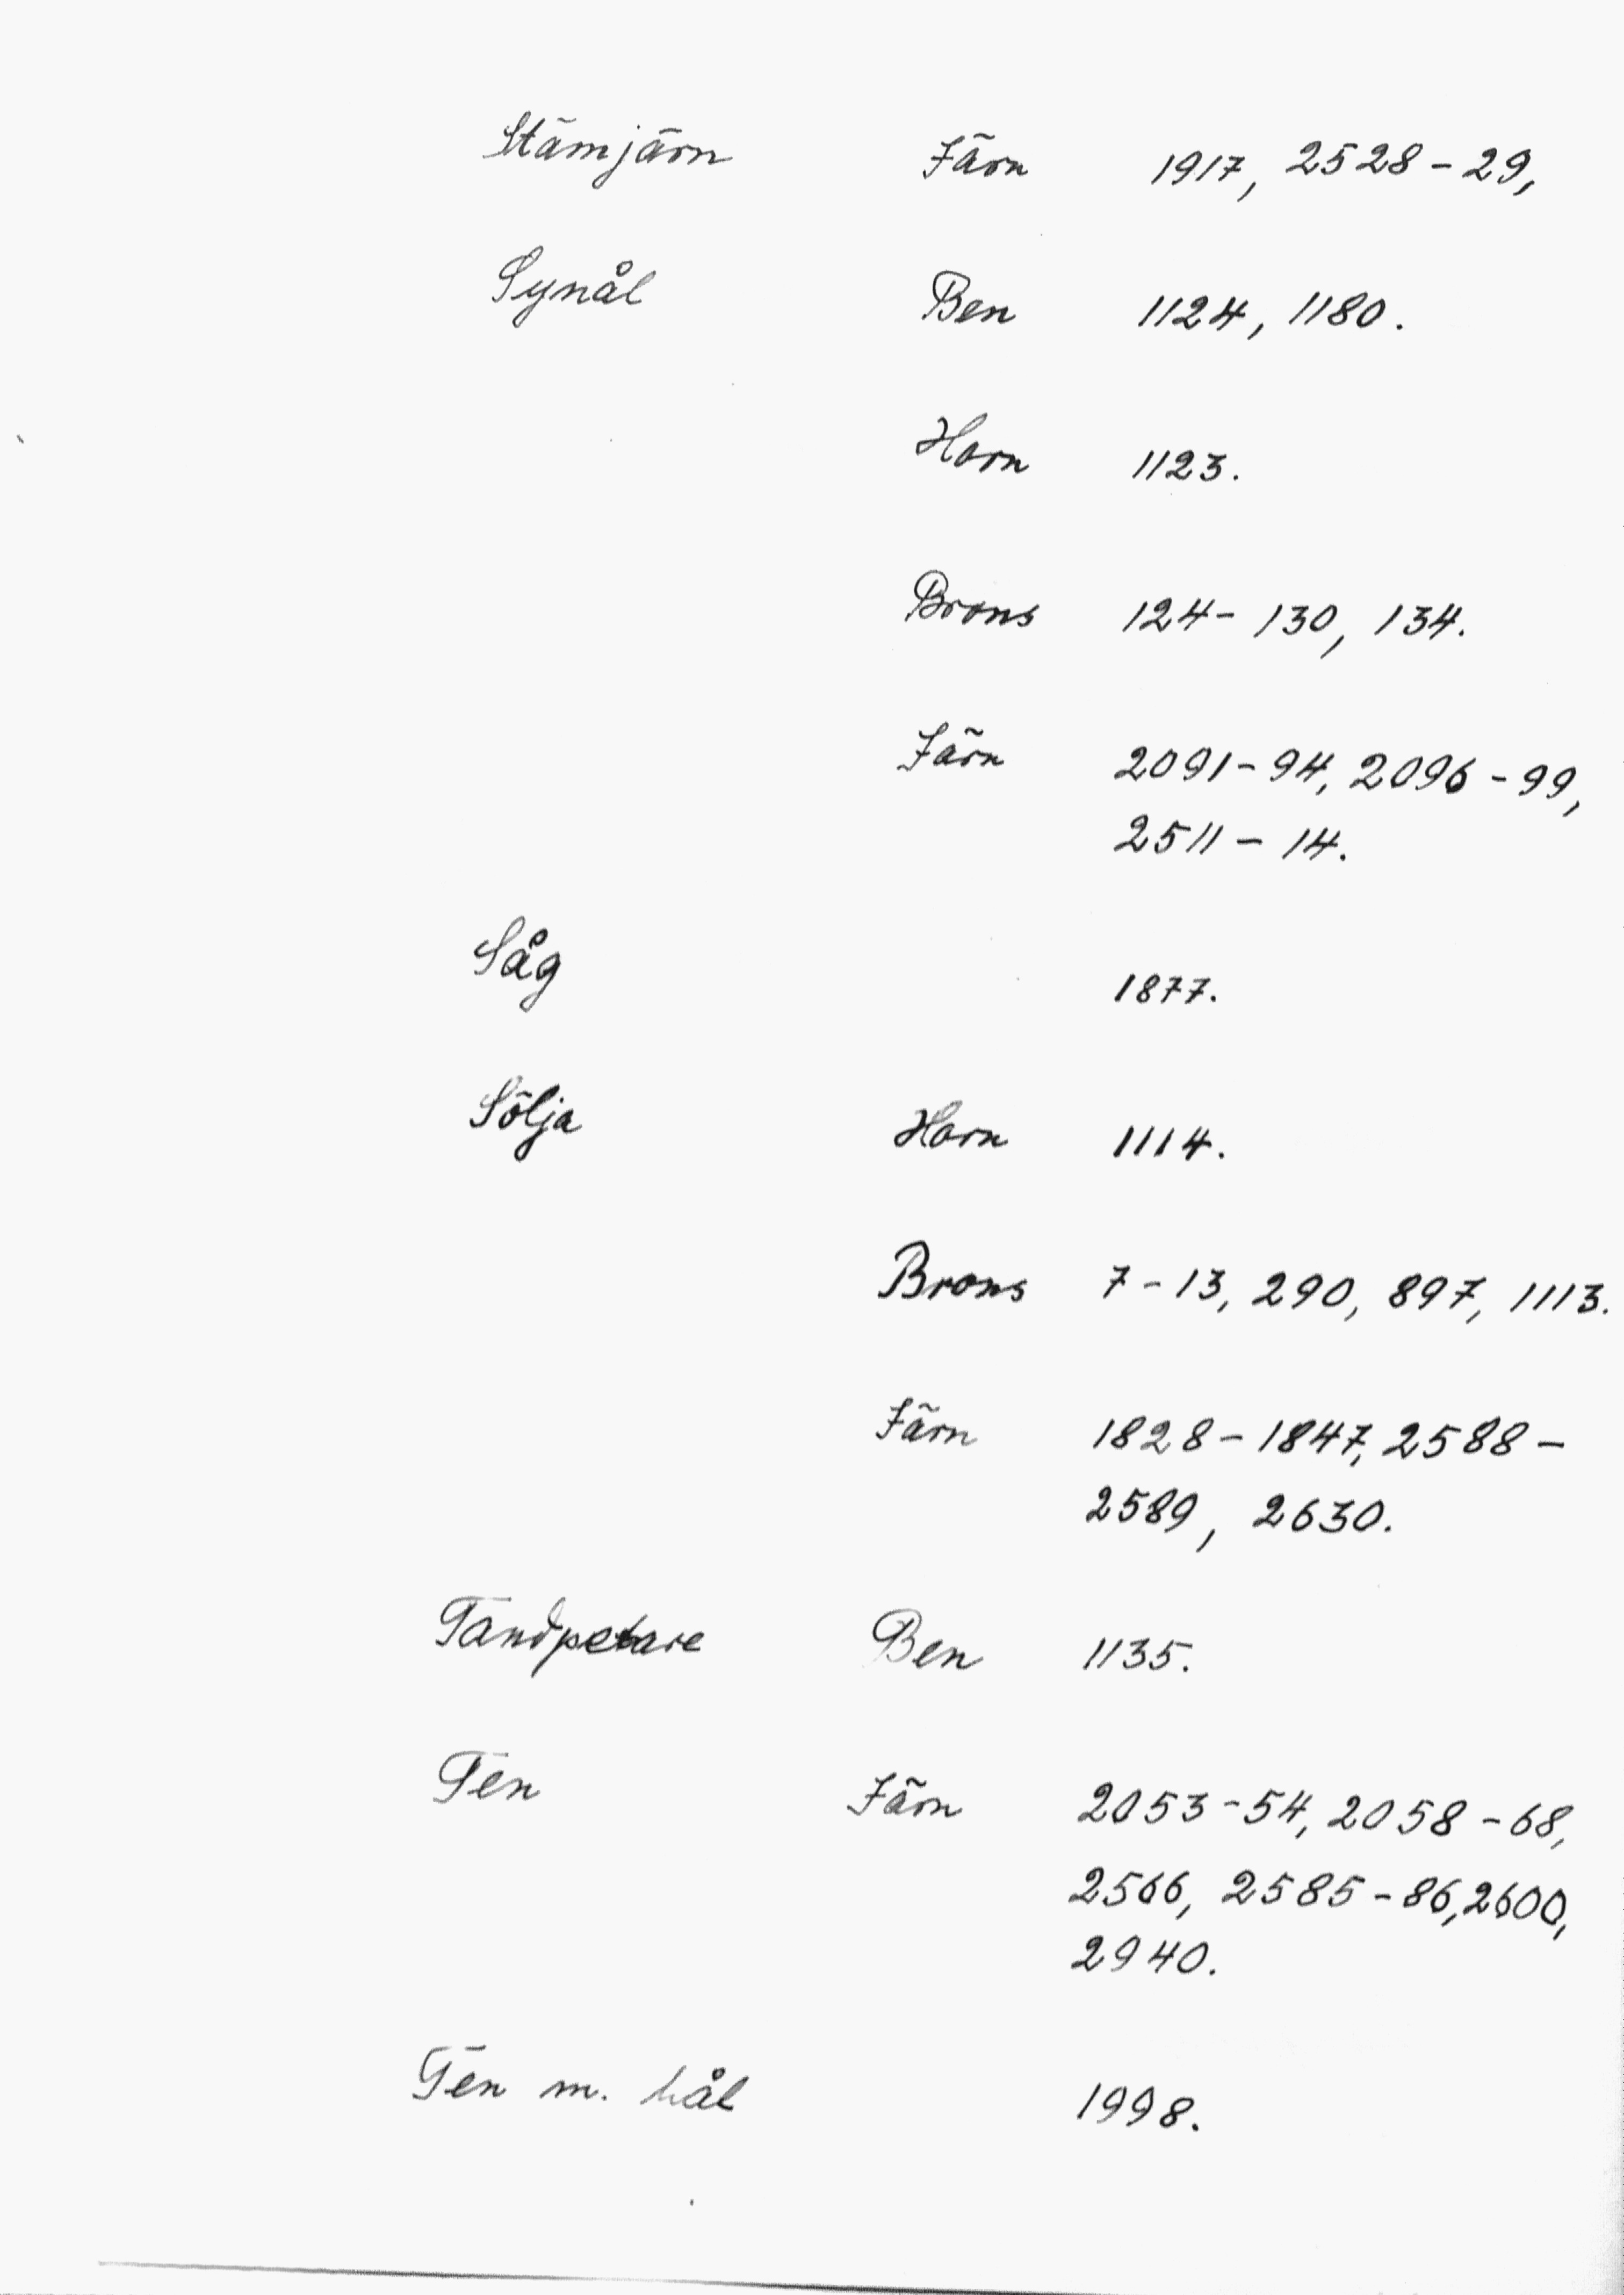 Stämjärn Järn 1917, 2528-29,
Synål Ben 1124, 1180.
Horn 1123.
Brons 124-130, 134.
Järn 2091-94, 2096-99,
2511-14.
Såg 1877.
Sölja Horn 1114.
Brons 7-13, 290, 897, 1113.
Järn 1828-1847, 2588-
2589, 2630.
Tandpetare Ben 1135.
Ten Järn 2053-54, 2058-68,
2566, 2585-86, 2600,
2940.
Ten m. hål 1998.